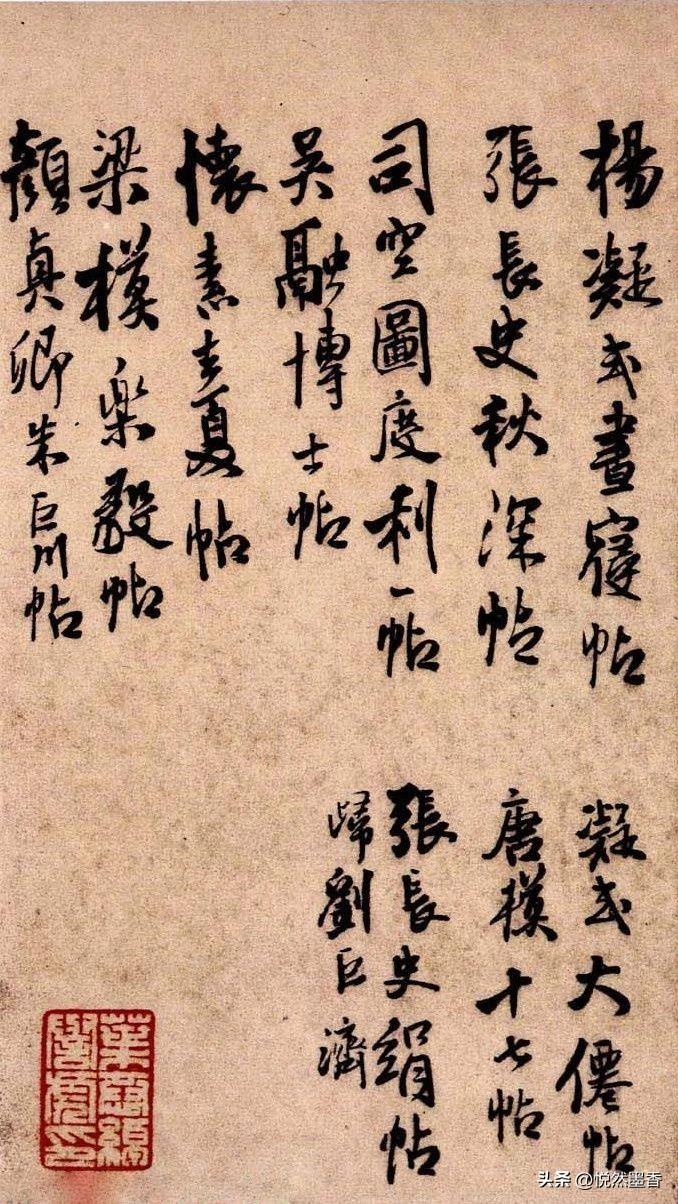 楊凝式晝寢帖
張長史秋深帖
司空圖度利一帖
吳融博士帖
懷素夏帖
梁模樂毅帖
顏真卿朱巨川帖
凝式大僊帖
唐模十七帖
張長史絹帖
歸劉巨濟
头条 @悦然墨香